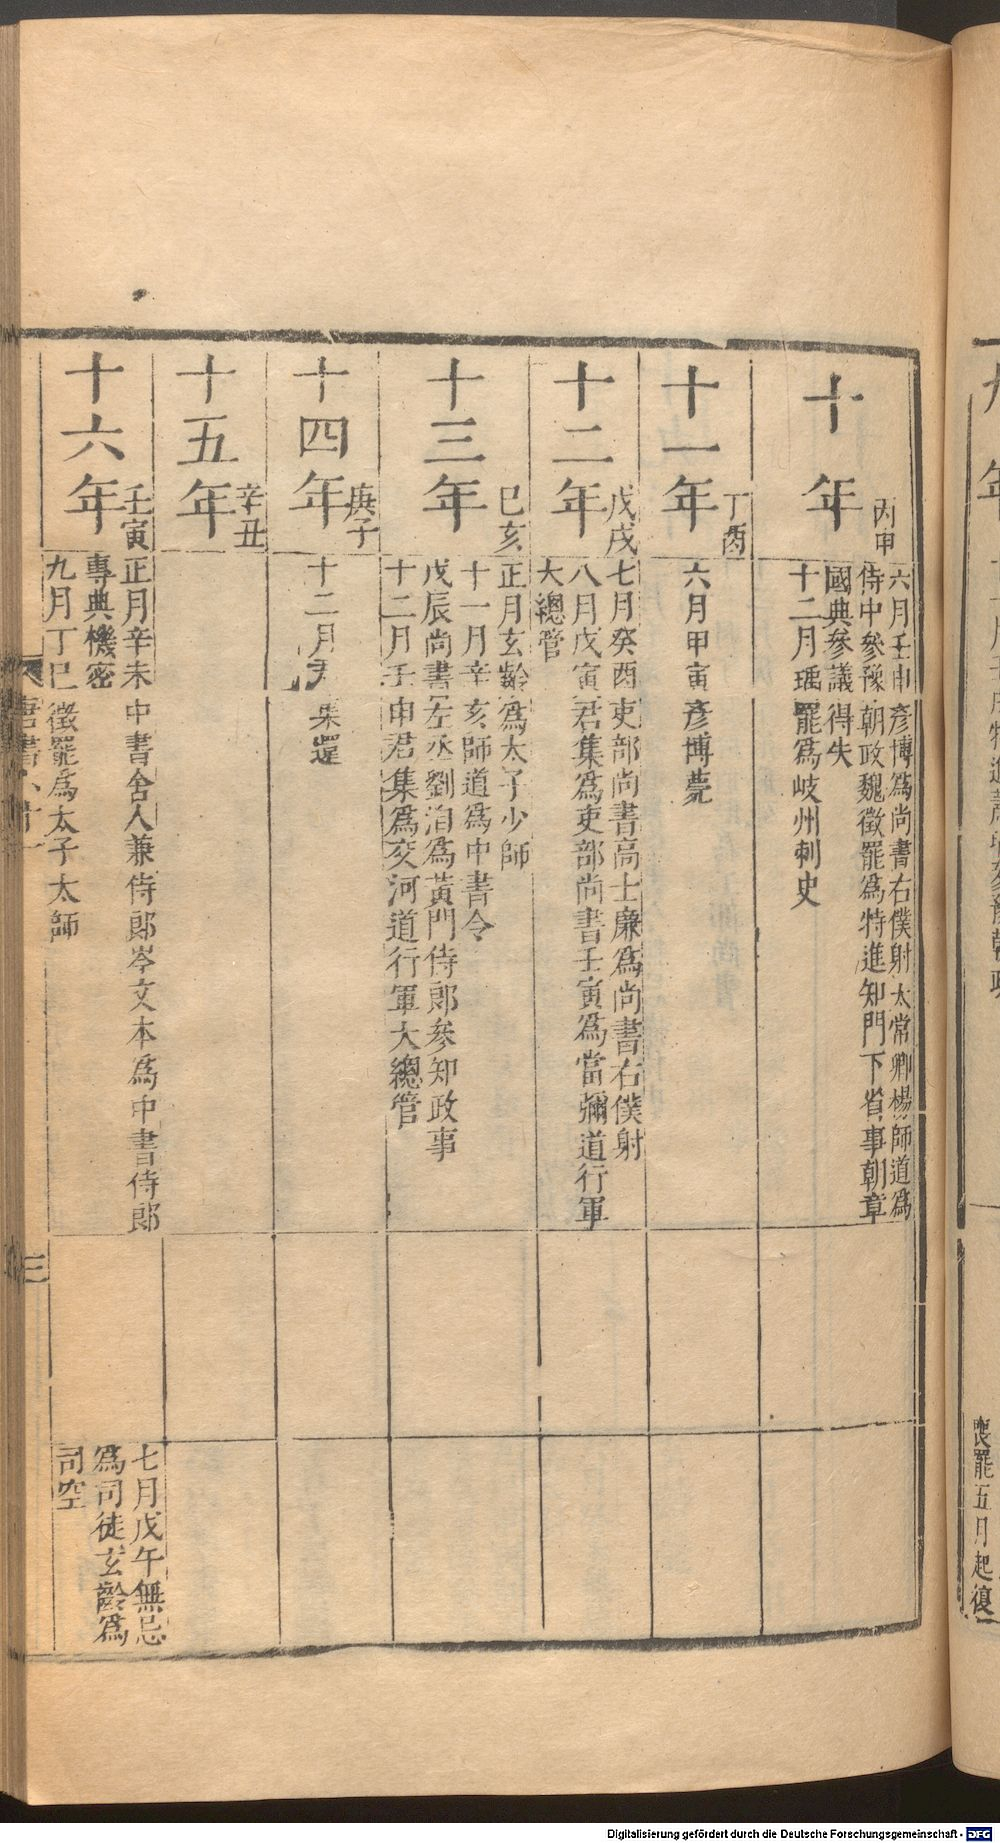 十年
丙申
六月壬申彥博爲尚書右僕射太常卿楊師道爲
侍中參豫朝政魏徵罷爲特進知門下省事朝章
國典參議得失
十二月瑀罷爲岐州刺史
十一年
丁酉
六月甲寅彥博薨
十二年
戊戌
七月癸酉吏部尚書高士廉爲尚書右僕射
八月戊寅君集爲吏部尚書壬寅爲當彌道行軍
大總管
十三年
己亥
正月玄齡爲太子少師
十一月辛亥師道爲中書令
戊辰尚書左丞劉洎爲黃門侍郎參知政事
十二月壬申君集爲交河道行軍大總管
十四年
庚子
十二月君集還
十五年
辛丑
十六年
壬寅
正月辛未中書舍人兼侍郎岑文本爲中書侍郎
專典機密
九月丁巳徵罷爲太子太師
七月戊午無忌
爲司徒玄齡爲
司空
唐書
三
喪罷五月起復
Digitalisierung gefördert durch die Deutsche Forschungsgemeinschaft - DFG